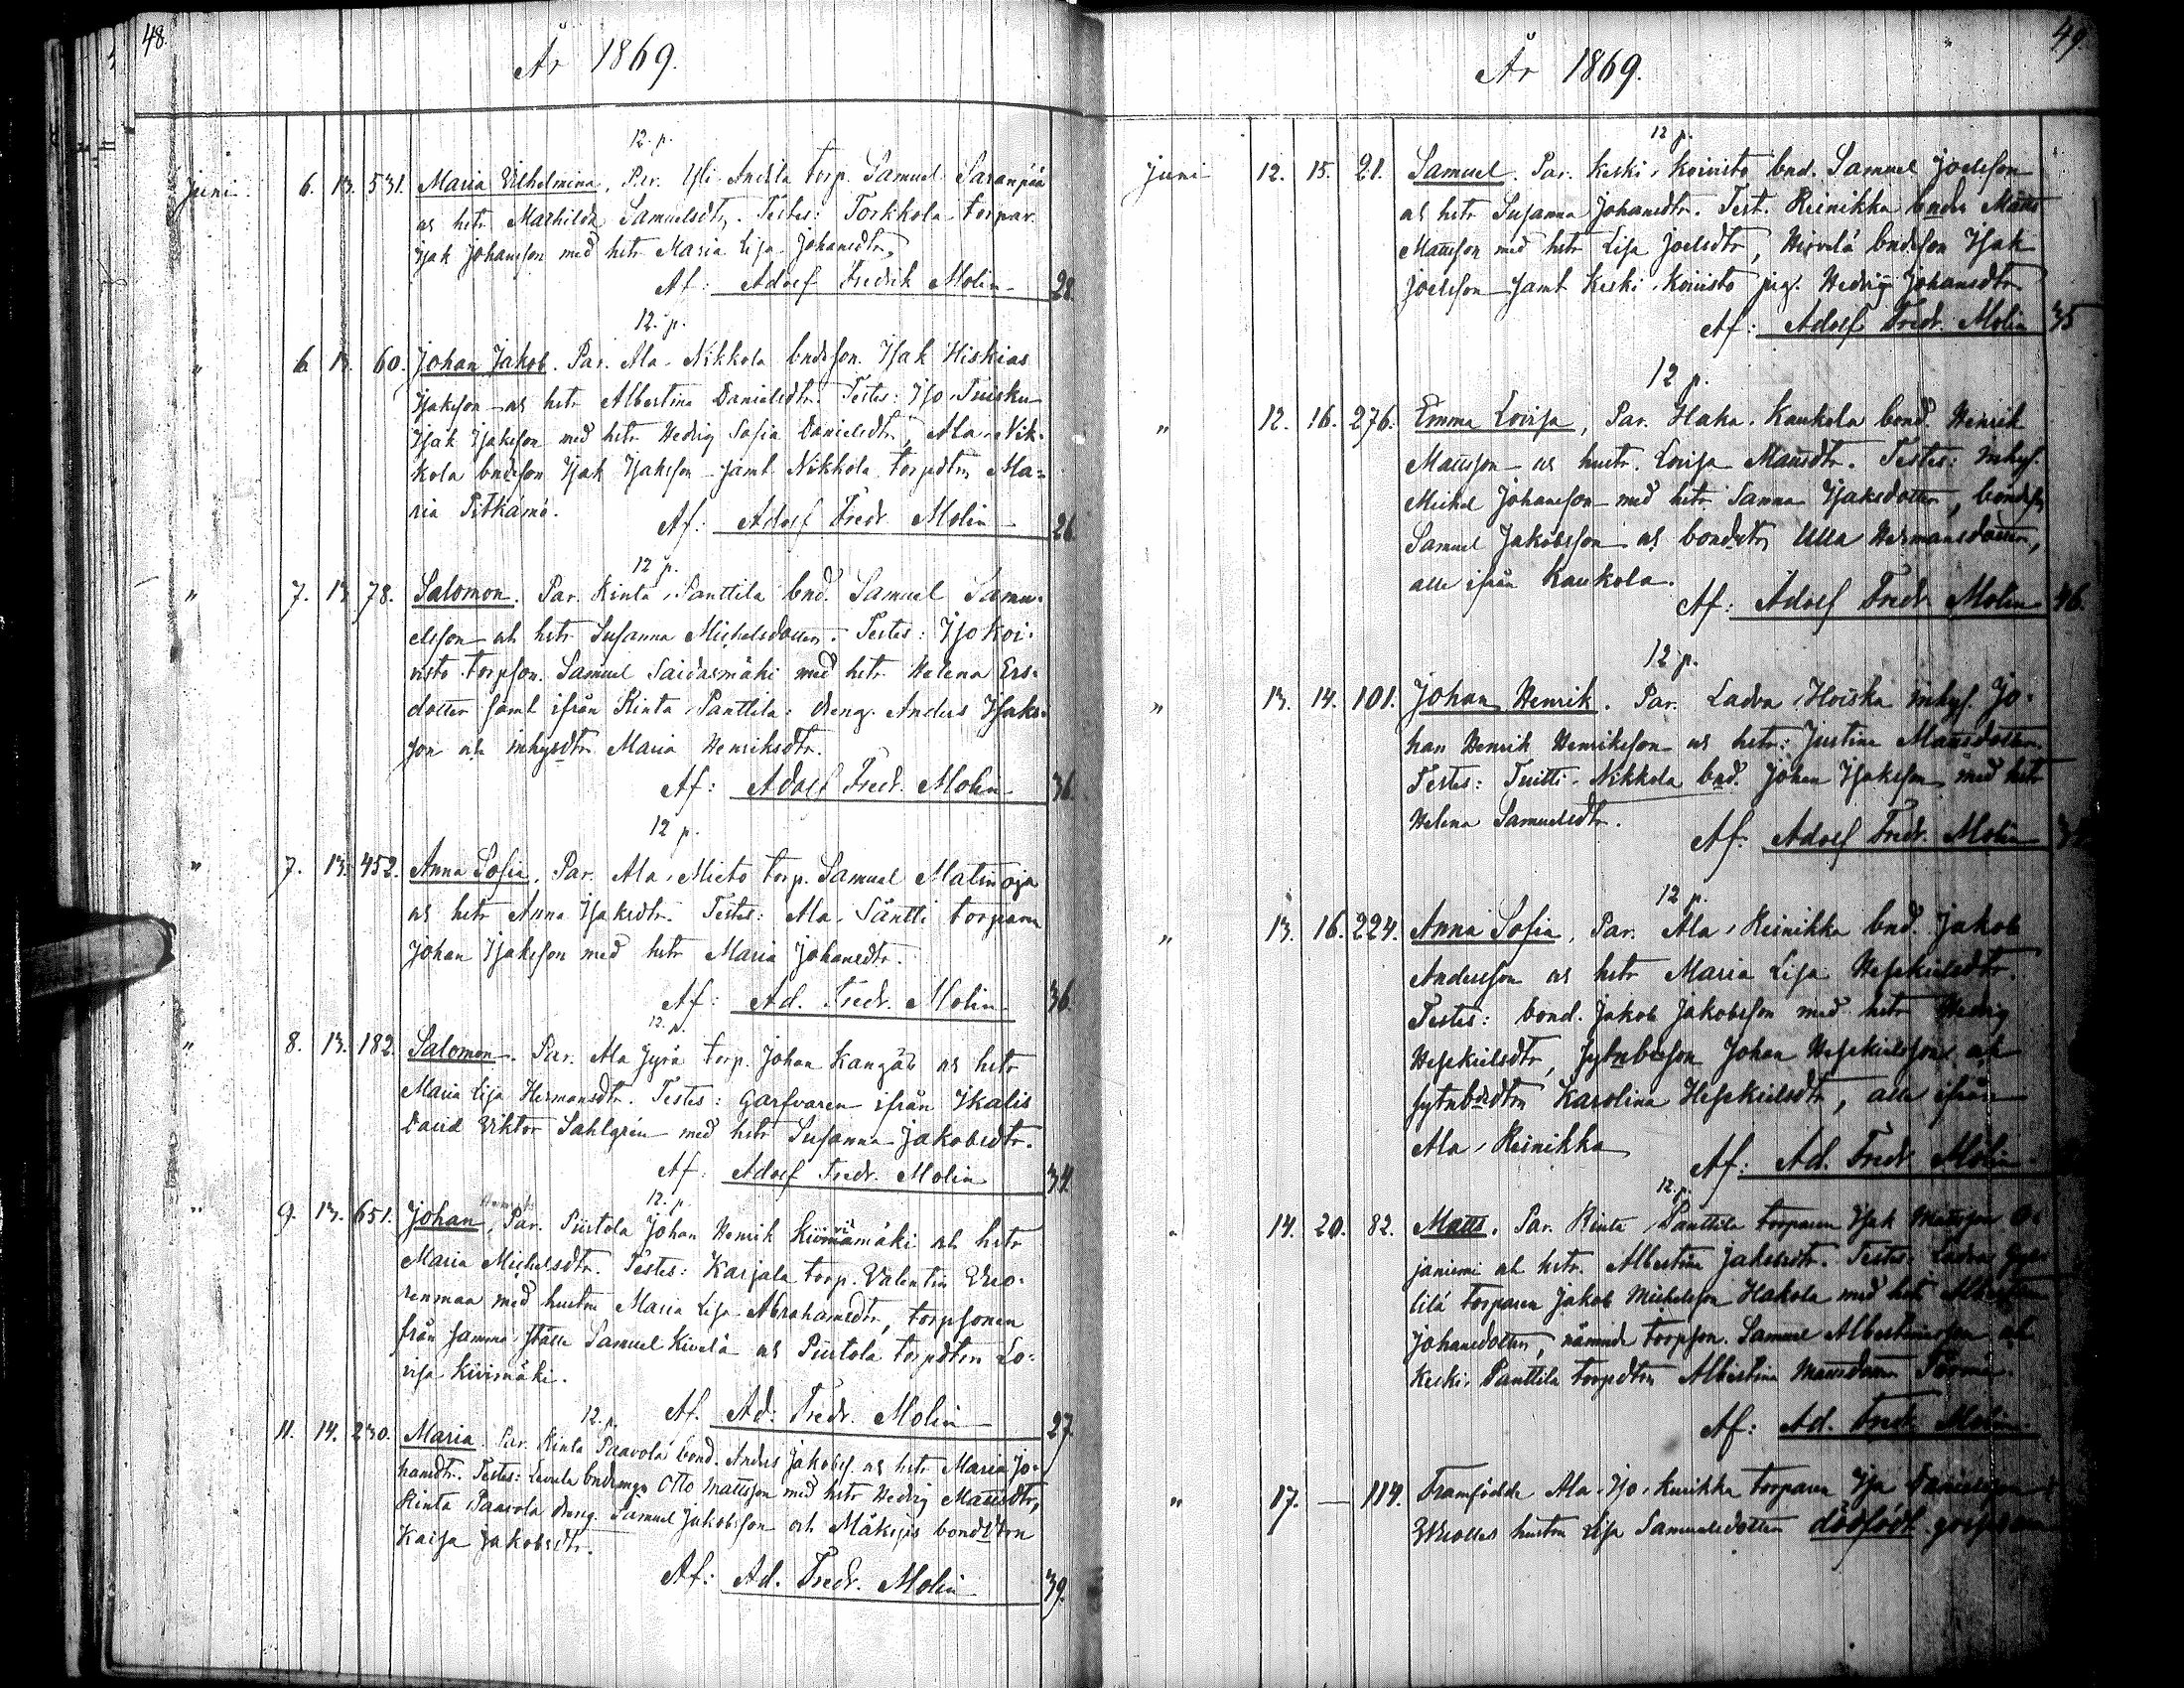 48.
År 1869.
12. p.
Juni 6. 13. 531. Maria Vilhelmina. Par. Yli Anttila torp. Samuel Saranpää
as hstr Mathilda Samuelsdtr. Testes: Torkkola torpar.
Isak Johansson med hstr Maria Lisa Johansdtr.
Af: Adolf Fredrik Molin 28.
12. p.
" 6. 13. 60. Johan Jakob. Par. Ala-Nikkola bndeson. Isak Hiskias
Isaksson as hstr Albertina Danielsdtr. Testes: Iso-Tuisku
Isak Isaksson med hstr Hedvig Sofia Danielsdtr, Ala-Nik-
kola bndeson Isak Isaksson samt Nikkola torpdtrn Ma-
ria Pitkämö.
Af: Adolf Fredr. Molin 26.
12 p.
" 7. 13. 78. Salomon. Par. Rinta-Panttila bnd. Samuel Samu-
elsson och hstr Susanna Michelsdotter. Testes: Iso Koi-
visto torpson. Samuel Saidasmäki med hstr Helena Ers-
dotter samt ifrån Rinta-Panttila: dreng. Anders Isaks-
son och inhysdtr Maria Henriksdtr.
Af: Adolf Fredr. Molin 36.
12 p.
" 7. 13. 452. Anna Sofia. Par. Ala-Mieto torp. Samuel Matinoja
as hstr Anna Isaksdtr. Testes: Ala-Säntti torparen
Johan Isaksson med hstr Maria Johansdtr.
Af: Ad. Fredr. Molin 36.
12. p.
" 8. 13. 182. Salomon. Par. Ala Jyrä torp. Johan Kangas as hstr
Maria Lisa Hermansdtr. Testes: Garfvaren ifrån Ikalis
David Viktor Sahlgrén med hstr Susanna Jakobsdtr.
Af: Adolf Fredr. Molin 34.
12. p.
" 9. 13. 651. Johan, Par. Piirtola Johan Henrik Kivimäki och hstr
Maria Michelsdtr. Testes: Karjala torp. Valentin Vuo-
renmaa med hustrn Maria Lisa Abrahamsdtr, torpsonen
från samma ställe Samuel Kivelä as Piirtola torpdtrn Lo-
visa Kivimäki.
Af. Ad: Fredr. Molin 27.
12. p.
11. 14. 230. Maria. Par. Rinta Paavola bond. Anders Jakobss. as hstr Maria Jo-
hansdtr. Testes: Levula bndmågn Otto Mattsson med hstr Hedvig Mattsdtr,
Rinta Paavola dreng. Samuel Jakobsson och Mäkynis bonddtrn
Kaisa Jakobsdtr.
Af: Ad. Fredr. Molin 39.
49.
År 1869.
12 p.
Juni 12. 15. 21. Samuel. Par. Keski-Koivisto bnd. Samuel Joelsson
as hstr Susanna Johansdtr. Test. Reinikka bnden Matts
Mattsson med hstr Lisa Joelsdtr, Hirvelä bndeson Isak
Joelsson samt Keski-Koivisto pig. Hedvig Johansdtr
Af: Adolf Fredr. Molin 35
12 p.
" 12. 16. 276. Emma Lovisa, Par. Haka-Kaukola bond. Henrik
Mattsson as hustr. Lovisa Mattsdtr. Testes: Inhys.
Michel Johansson med hstr Sanna Isaksdotter, bondeson
Samuel Jakobsson as bonddtr Ulla Hermansdotter,
alle ifrån Kaukola.
Af: Adolf Fredr. Molin 46.
12 p.
" 13. 14. 101. Johan Henrik. Par. Ladva-Hoiska inhys. Jo-
han Henrik Henriksson as hstr: Justina Mattsdotter.
Testes: Tuitti-Nikkola bnd. Johan Isaksson med hstr
Helena Samuelsdtr.
Af: Adolf Fredr. Molin
12 p.
" 13. 16. 224. Anna Sofia, Par. Ala-Reinikka bnd. Jakob
Andersson as hstr Maria Lisa Hesekielsdtr.
Testes: bond. Jakob Jakobsson med hstr Hedvig
Hesekielsdtr, sytnbdeson Johan Hesekielsson och
sytnbdedtrn Karolina Hesekielsdtr, alla ifrån
Ala-Reinikka
Af: Ad. Fredr Molin
12. p.
" 14. 20. 82. Matts. Par. Rinta-Panttila torparen Isak Mattsson
janiemi och hstr. Albertina Jakobsdtr. Testes: Ladva
lilä torparen Jakob Michelsson Hakola med hstr Albertina
Johansdotter, nämnde torpson. Samuel Albertinusson och
Keski-Panttila torpdtrn Albertina Mattsdotter
Af: Ad. Fredr Molin
" 17. — 114. Framfödde Ala-Iso-Kurikka torparen Isa Danielsson
hustru Lisa Samuelsdotter dödfödt gossebarn